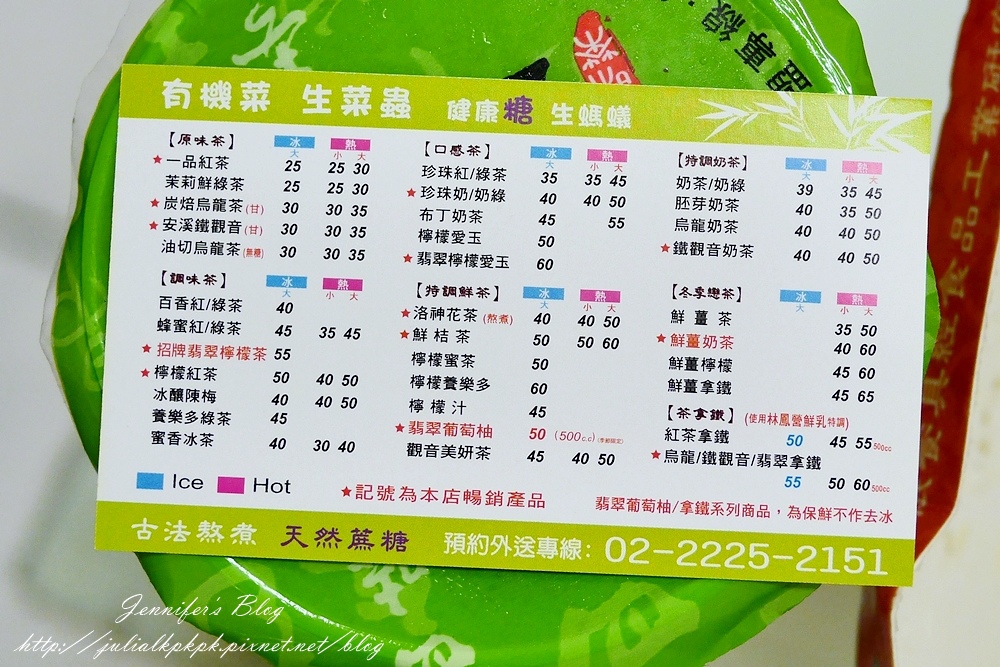 有機菜 生菜蟲 健康糖 生螞蟻
【原味茶】 冰 熱
大 小 大
★一品紅茶 25 25 30
茉莉鮮綠茶 25 25 30
★炭焙烏龍茶(甘) 30 30 35
★安溪鐵觀音(甘) 30 30 35
油切烏龍茶(無糖) 30 30 35
【調味茶】 冰 熱
大 小 大
百香紅/綠茶 40
蜂蜜紅/綠茶 45 35 45
★招牌翡翠檸檬茶 55
★檸檬紅茶 50 40 50
冰釀陳梅 40 40 50
養樂多綠茶 45
蜜香冰茶 40 30 40
【口感茶】 冰 熱
大 小 大
珍珠紅/綠茶 35 35 45
★珍珠奶/奶綠 40 40 50
布丁奶茶 45 55
檸檬愛玉 50
★翡翠檸檬愛玉 60
【特調鮮茶】 冰 熱
大 小 大
★洛神花茶(熬煮) 40 40 50
★鮮桔茶 50 50 60
檸檬蜜茶 50
檸檬養樂多 60
檸檬汁 45
★翡翠葡萄柚 50 (500c.c)(季節限定)
觀音美妍茶 45 40 50
【特調奶茶】 冰 熱
大 小 大
奶茶/奶綠 39 35 45
胚芽奶茶 40 35 50
烏龍奶茶 40 40 50
★鐵觀音奶茶 40 40 50
【冬季戀茶】 冰 熱
大 小 大
鮮薑茶 35 50
★鮮薑奶茶 40 60
鮮薑檸檬 45 60
鮮薑拿鐵 45 65
【茶拿鐵】(使用林鳳營鮮乳特調)
紅茶拿鐵 50 45 55 500cc
★烏龍/鐵觀音/翡翠拿鐵
55 50 60 500cc
Ice Hot ★記號為本店暢銷產品
翡翠葡萄柚/拿鐵系列商品，為保鮮不作去冰
古法熬煮 天然蔗糖 預約外送專線：02-2225-2151
Jennifer's Blog
http://julialkpkpk.pixnet.net/blog